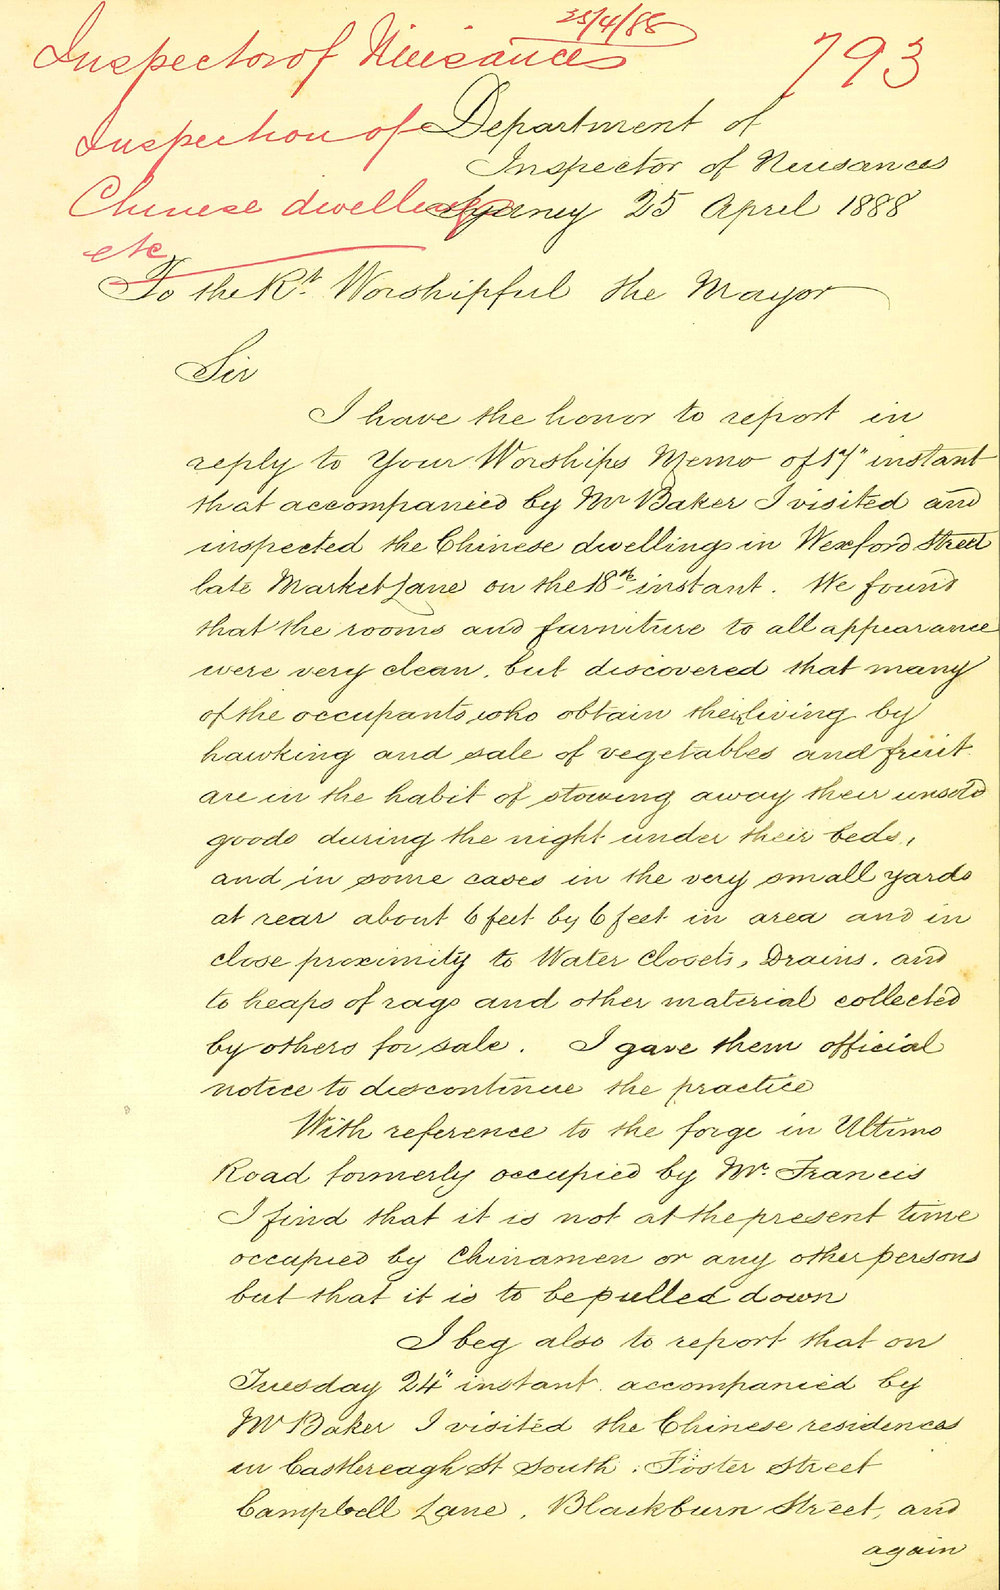 25/4/88
Inspector of Nuisances
793
Inspection of
Chinese dwellings
etc
Department of
Inspector of Nuisances
Sydney 25 April 1888
To the Rt. Worshipful the Mayor
Sir
I have the honor to report in
reply to Your Worships Memo of 17" instant
that accompanied by Mr Baker I visited and
inspected the Chinese dwellings in Wexford Street
late Market Lane on the 18th instant. We found
that the rooms and furniture to all appearance
were very clean, but discovered that many
of the occupants who obtain their living by
hawking and sale of vegetables and fruit
are in the habit of stowing away their unsold
goods during the night under their beds,
and in some cases in the very small yards
at rear about 6 feet by 6 feet in area and in
close proximity to Water Closets, Drains, and
to heaps of rags and other material collected
by others for sale. I gave them official
notice to discontinue the practice
With reference to the forge in Ultimo
Road formerly occupied by Mr. Francis
I find that it is not at the present time
occupied by Chinamen or any other persons
but that it is to be pulled down
I beg also to report that on
Tuesday 24" instant accompanied by
Mr Baker I visited the Chinese residences
in Castlereagh St South, Foster Street
Campbell Lane, Blackburn Street, and
again